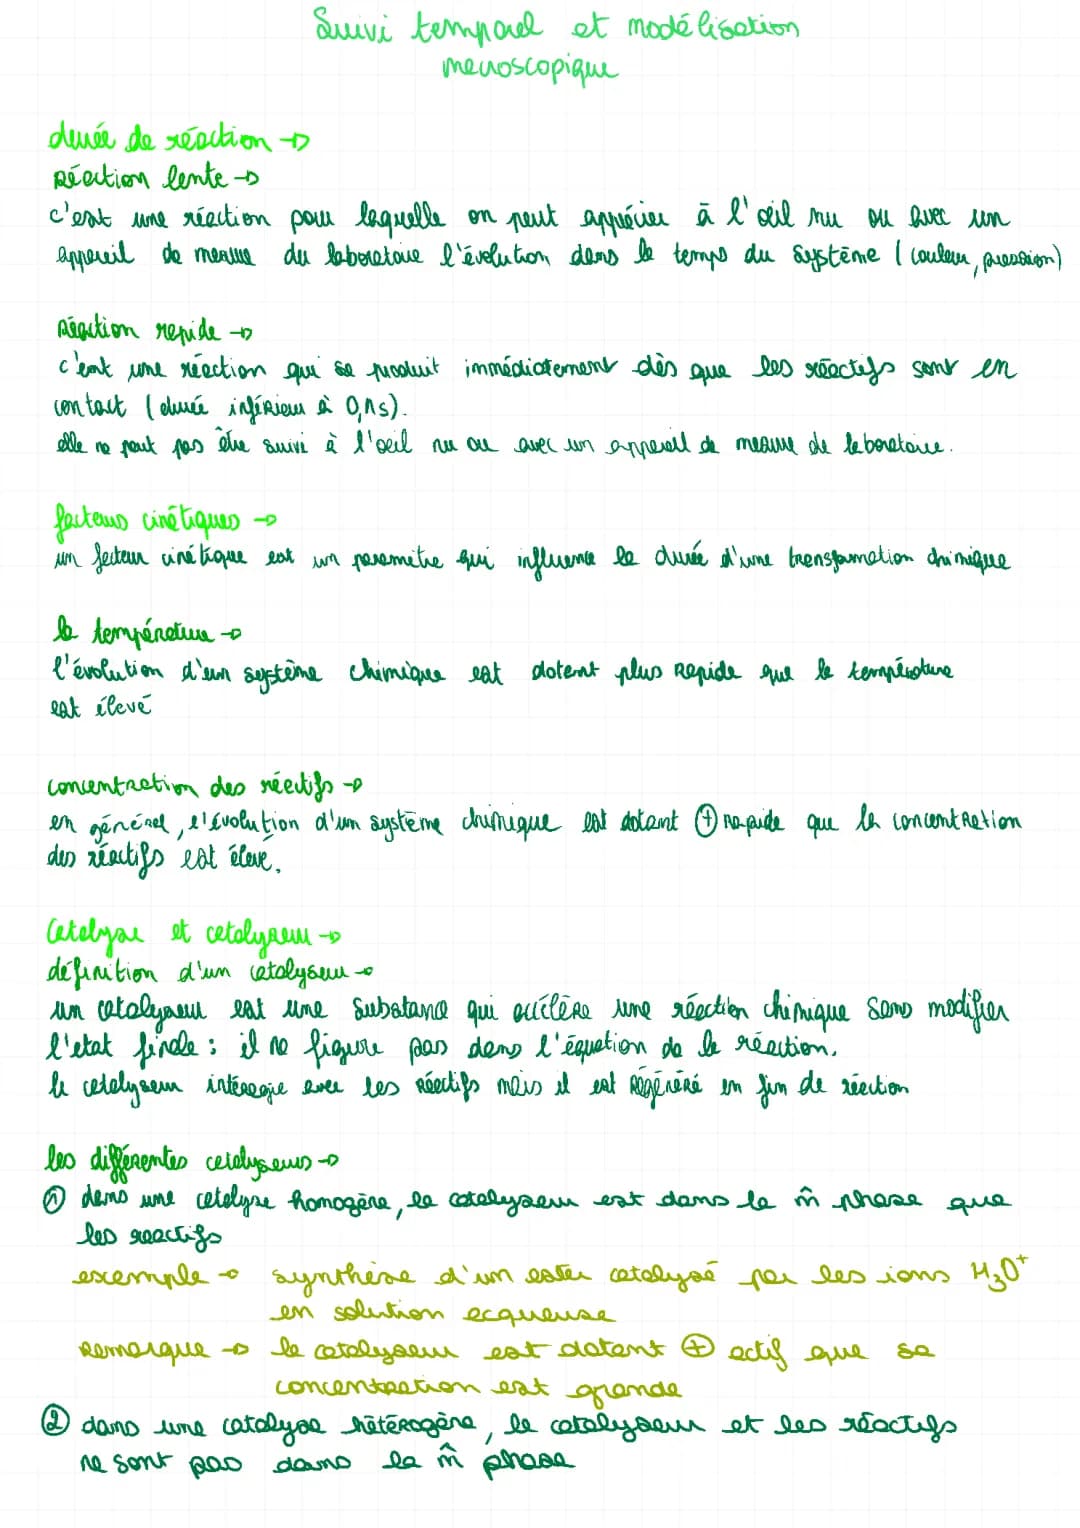 Suivi temporel et modélisation
macroscopique
durée de réaction →
Réaction lente →
c'est une réaction pour laquelle on peut apprécier à l'œil nu ou avec un
appareil de mesure du laboratoire l'évolution dans le temps du système (couleur, pression)
Réaction rapide →
c'est une réaction qui se produit immédiatement dès que les réactifs sont en
contact (durée inférieur à 0,1s).
elle ne peut pas être suivi à l'oeil nu ou avec un appareil de mesure de laboratoire.
facteurs cinétiques →
un facteur cinétique est un paramètre qui influence la durée d'une transformation chimique
la température →
l'évolution d'un système chimique est dotant plus rapide que la température
est élevé
concentration des réactifs →
en général, l'évolution d'un système chimique est dotant ⊕ rapide que la concentration
des réactifs est élevé.
Catalyse et catalyseur →
définition d'un catalyseur →
un catalyseur est une substance qui accélère une réaction chimique sans modifier
l'etat finale : il ne figure pas dans l'équation de la réaction.
le catalyseur intéragie avec les réactifs mais il est régénéré en fin de réaction
les différentes catalyseurs →
① dans une catalyse homogène, le catalyseur est dans la m̂ phase que
les reactifs
exemple → synthèse d'un ester catalysé par les ions H₃O⁺
en solution acqueuse
Remarque → le catalyseur est dotant ⊕ actif que sa
concentration est grande
② dans une catalyse hétérogène, le catalyseur et les réactifs
ne sont pas dans la m̂ phase